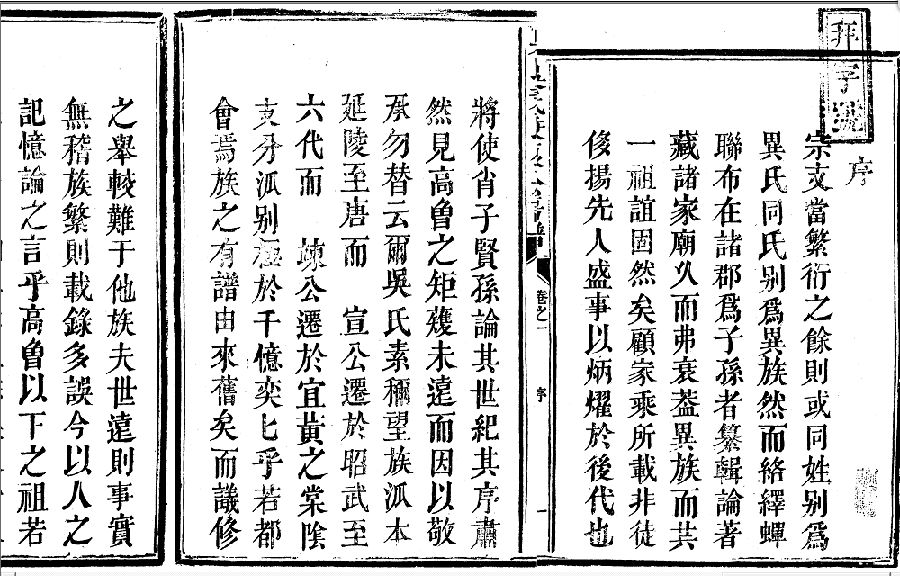 拜字號
序
宗支當繁衍之餘則或同姓别爲
異氏同氏别爲異族然而絡繹蟬
聯布在諸郡爲子孫者纂輯論著
藏諸家廟久而弗衰葢異族而共
一祖誼固然矣顧家乘所載非徒
侈揚先人盛事以炳燿於後代也
卷之一
序
一
將使肖子賢孫論其世紀其序肅
然見高曽之矩矱未遠而因以敬
承勿替云爾吳氏素稱望族派本
延陵至唐而 宣公遷於昭武至
六代而 竦公遷於宜黃之棠陰
支分派别極於千億奕七乎若都
會焉族之有譜由來舊矣而議修
之舉較難于他族夫世遠則事實
無稽族繁則載錄多誤今以人之
記憶論之言乎高曽以下之祖若